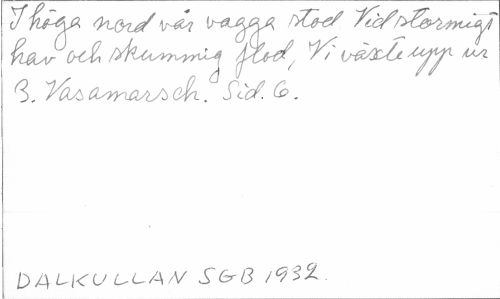 I höga nord vår vagga stod Vid stormigt
hav och skummig flod, Vi växte upp ur
B. Vasamarsch. Sid. 6.
DALKULLAN SGB 1932.